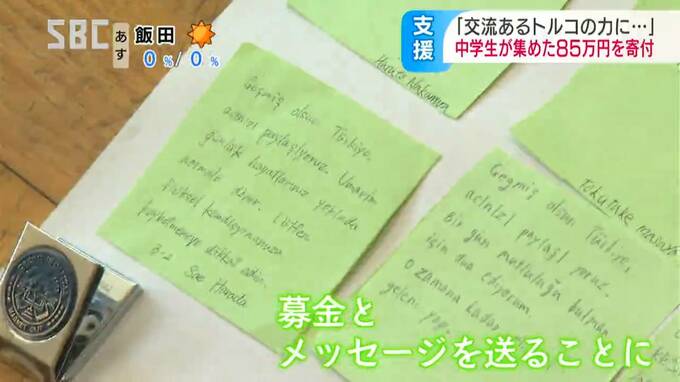 SBC
あす
飯田
0%/0%
支援
「交流あるトルコの力に…」
中学生が集めた85万円を寄付
Haruto Nakamura
Geçmiş olsun Türkiye,
acınızı paylaşıyoruz. Umarım
günlük hayatlarınız yakında
normale döner. Lütfen
fiziksel kondisyonunuza
kaybetmemeye dikkat edin.
3-2
Sae Harada
Tokutake masaya
Geçmiş olsun Türkiye,
acınızı paylaşıyoruz.
Bir gün mutluluğu bulman
için dua ediyorum.
O zamana kadar
募金と
メッセージを送ることに